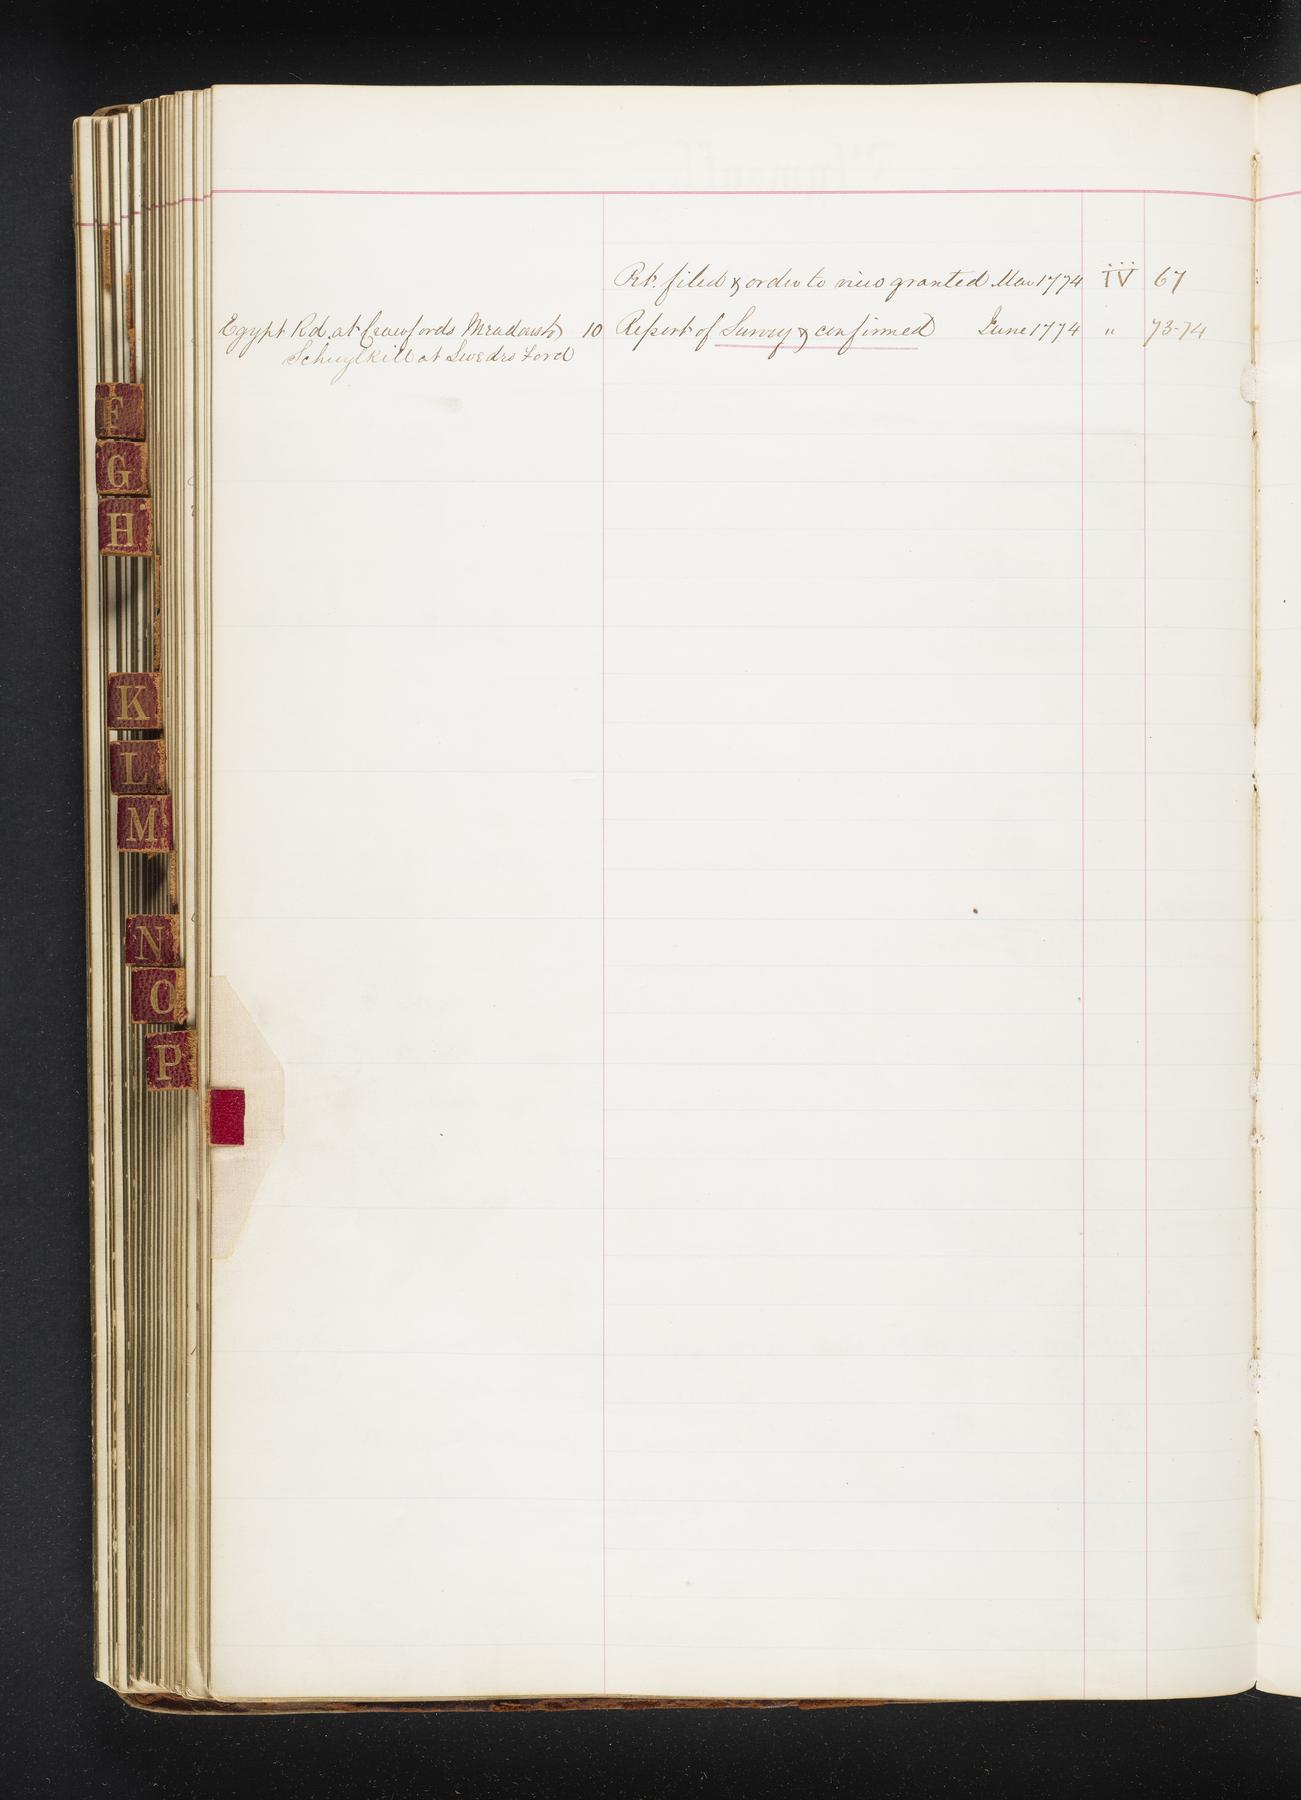 Pet. filed & order to view granted Mar 1774 IV 67
Egypt Rd. at Crawfords Meadow to 10 Report of Survey & confirmed June 1774 " 73-74
Schuylkill at Swedes Ford
F
G
H
K
L
M
N
O
P